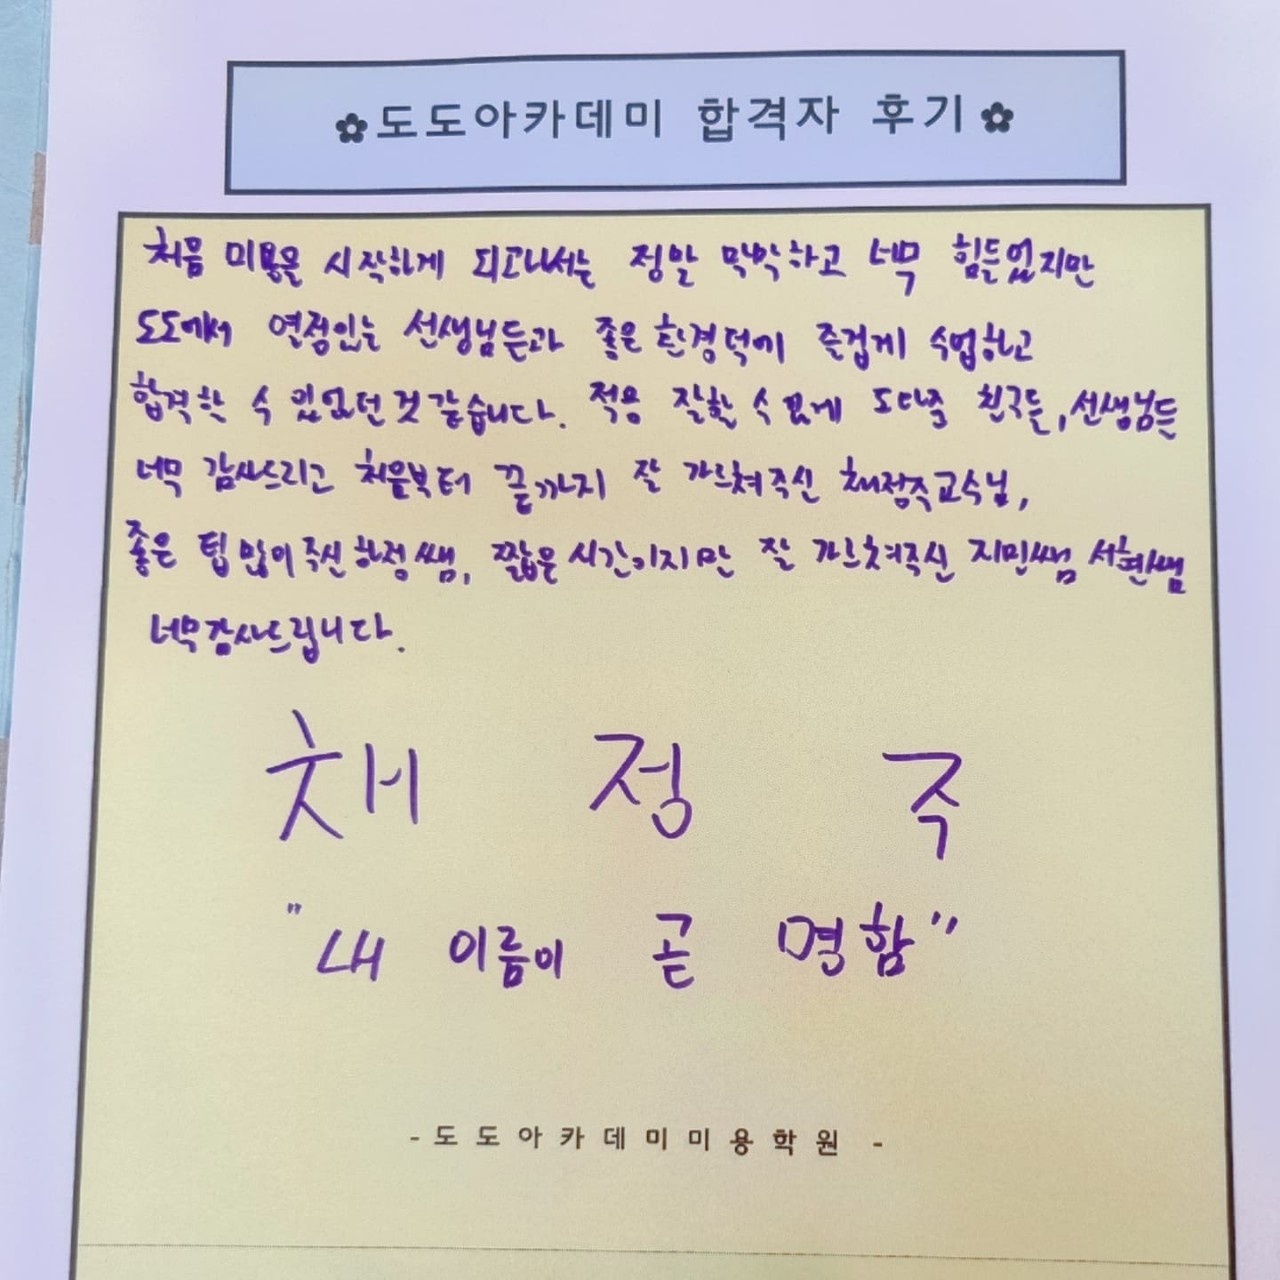 ✿도도아카데미 합격자 후기✿
처음 미용을 시작하게 되고나서는 정말 막막하고 너무 힘든었지만
도도에서 열정있는 선생님들과 좋은 환경덕에 즐겁게 수업하고
합격할 수 있었던것 같습니다. 적응 잘할 수 있게 도와준 친구들, 선생님들
너무 감사드리고 처음부터 끝까지 잘 가르쳐주신 채정주교수님,
좋은 팁 많이주신 하정쌤, 짧은 시간이지만 잘 가르쳐주신 지민쌤 서현쌤
너무감사드립니다.
채 정 주
"내 이름이 곧 명함"
- 도도아카데미미용학원 -